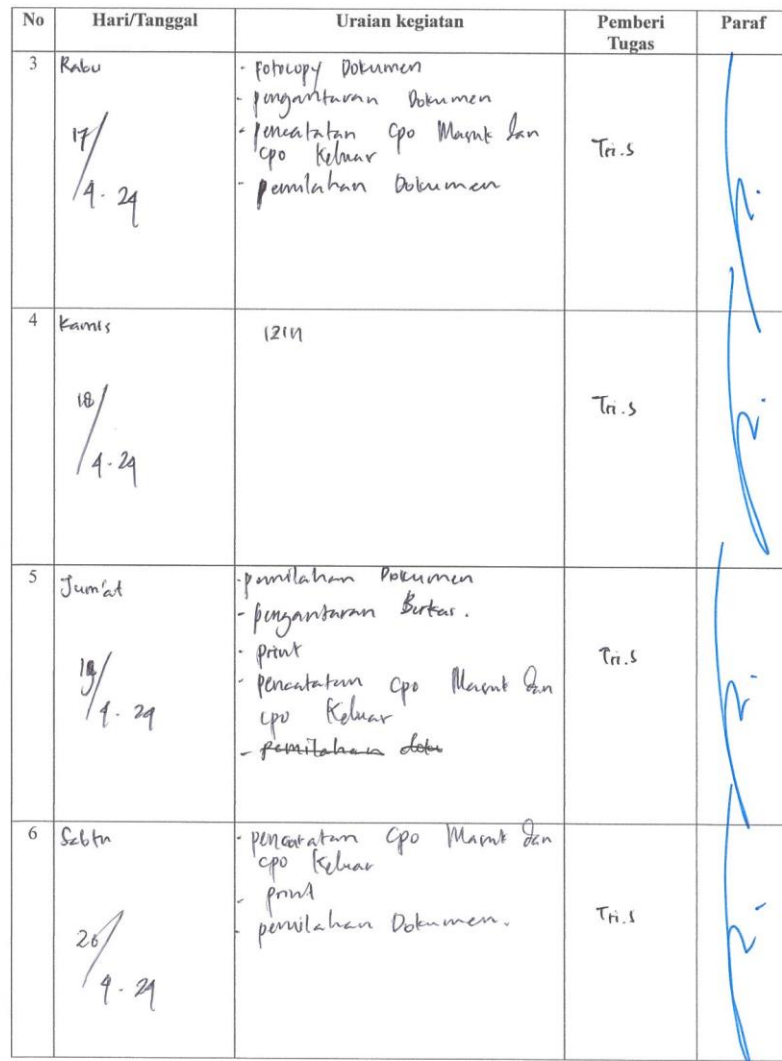 No Hari/Tanggal Uraian kegiatan Pemberi Tugas Paraf
3 Rabu
17/4-24
- Fotocopy Dokumen
- pengantaran Dokumen
- pencatatan Cpo Masuk dan
cpo Keluar
- pemilahan Dokumen
Tri.S
4 Kamis
18/4-24
izin
Tri.S
5 Jum'at
19/4-24
- pemilahan Dokumen
- pengantaran Berkas.
- print
- pencatatan cpo Masuk dan
cpo Keluar
- pemilahan doku
Tri.S
6 Sabtu
20/4-24
- pencatatan Cpo Masuk dan
cpo Keluar
- print
- pemilahan Dokumen.
Tri.S